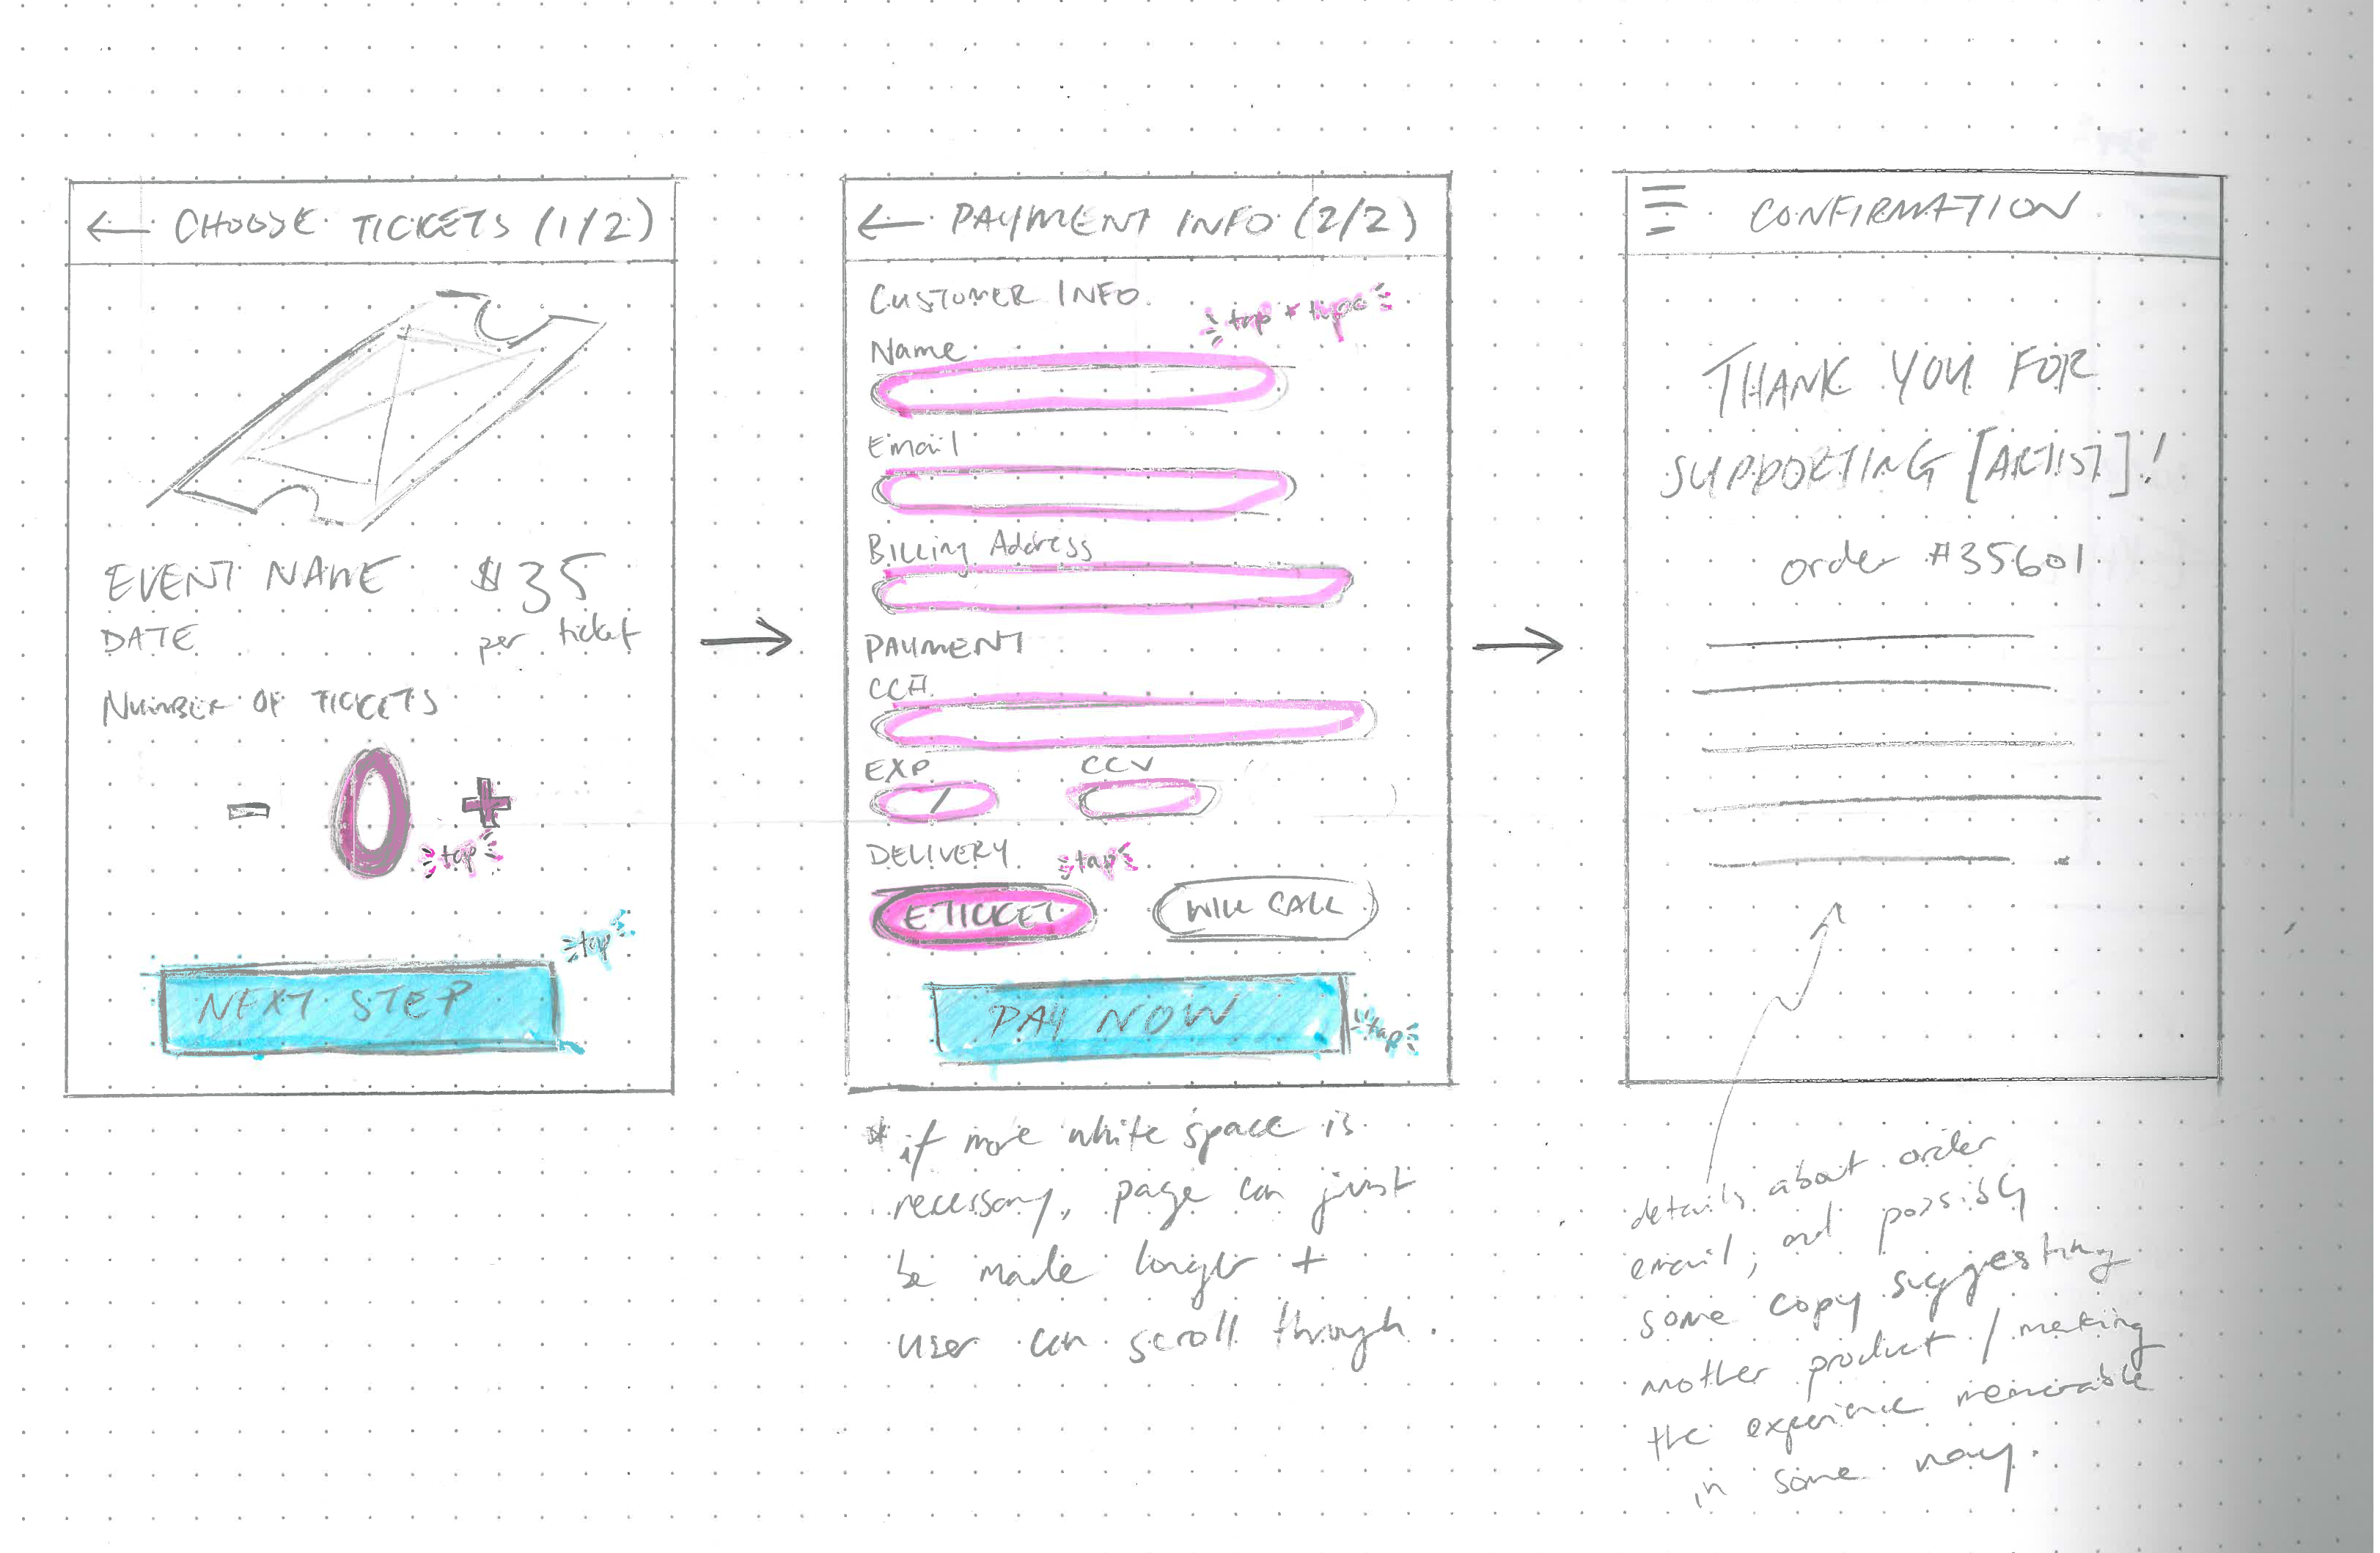 ← CHOOSE TICKETS (1/2)
EVENT NAME $35
DATE per ticket
NUMBER OF TICKETS
- 0 +
tap
tap
NEXT STEP
← PAYMENT INFO (2/2)
CUSTOMER INFO
tap + type
Name
Email
Billing Address
PAYMENT
CC#
EXP CCV
/
DELIVERY
tap
E-TICKET WILL CALL
PAY NOW
tap
* if more white space is
necessary, page can just
be made longer +
user can scroll through.
CONFIRMATION
THANK YOU FOR
SUPPORTING [ARTIST]!
order #35601
details about order
email, and possibly
some copy suggesting
another product / making
the experience memorable
in some way.